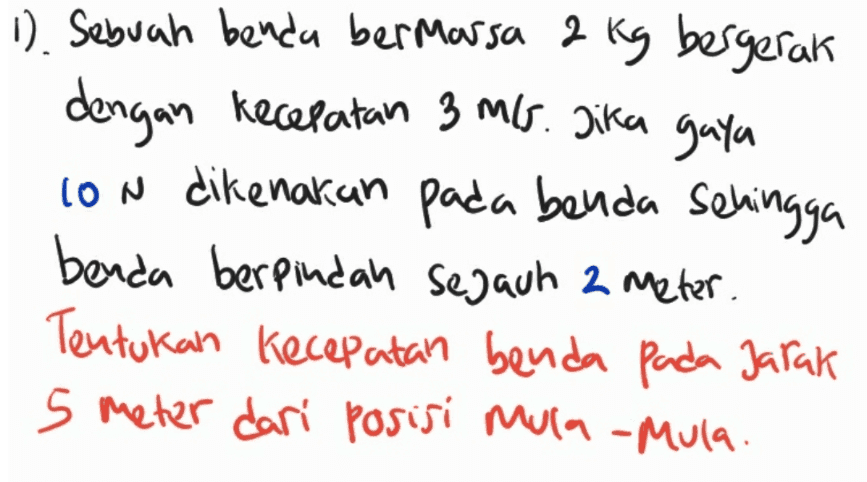 1). Sebuah benda bermassa 2 kg bergerak
dengan kecepatan 3 m/s. Jika gaya
10 N dikenakan pada benda sehingga
benda berpindah sejauh 2 meter.
Tentukan kecepatan benda pada jarak
5 meter dari posisi mula-mula.